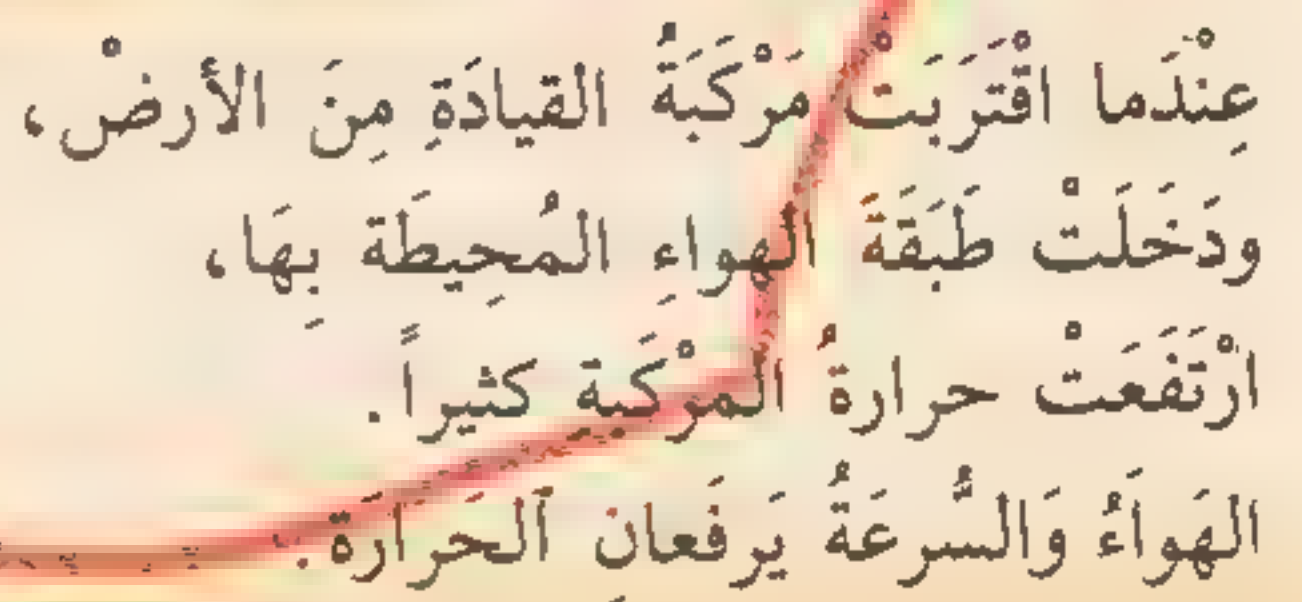 عِنْدَما اقْتَرَبَتْ مَرْكَبَةُ القيادَةِ مِنَ الأرضْ،
ودَخَلَتْ طَبَقَةَ الهواءِ المُحِيطَة بِهَا،
ارْتَفَعَتْ حرارةُ المرْكَبة كثيراً.
الهَواَءُ وَالسُّرعَةُ يَرفَعانِ اَلحَرارَة.